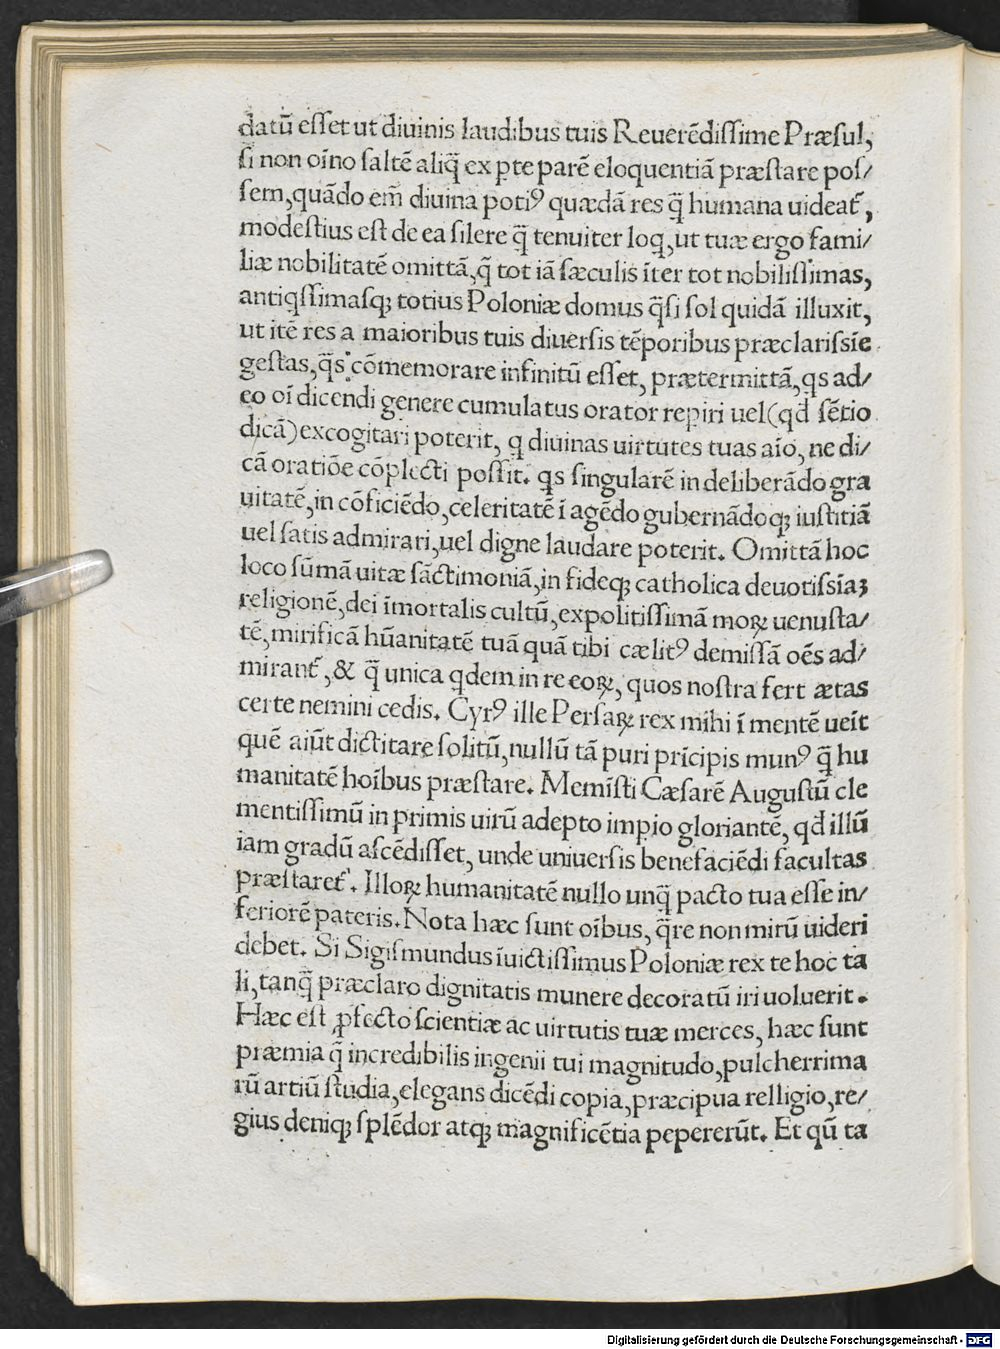 datū eſſet ut diuinis laudibus tuis Reuerēdiſſime Præſul,
ſi non oīno ſaltē aliq̄ ex ꝑte parē eloquentiā præſtare poſ/
ſem, quādo em̄ diuina potiꝰ quædā res q̄ humana uideat᷑,
modeſtius eſt de ea ſilere q̄ tenuiter loq, ut tuæ ergo fami/
liæ nobilitatē omittā, q̄ tot iā ſæculis īter tot nobiliſſimas,
antiqſſimaſqꝫ totius Poloniæ domus q̄ſi ſol quidā illuxit,
ut itē res a maioribus tuis diuerſis tēporibus præclariſsīe
geſtas, q̄s cōmemorare infinitū eſſet, prætermittā, qs ad/
eo oī dicendi genere cumulatus orator reꝑiri uel (qd̄ ſētio
dicā) excogitari poterit, q diuinas uirtutes tuas aīo, ne di/
cā oratiōe cōplecti poſſit. qs ſingularē in deliberādo gra
uitatē, in cōficiēdo, celeritatē ī agēdo gubernādoqꝫ iuſtitiā
uel ſatis admirari, uel digne laudare poterit. Omittā hoc
loco ſūmā uitæ ſāctimoniā, in fideqꝫ catholica deuotiſsīaꝫ
religionē, dei īmortalis cultū, expolitiſſimā moꝝ uenuſta/
tē, mirificā hūanitatē tuā quā tibi cælitꝰ demiſſā oēs ad/
mirant᷑, & q̄ unica qdem in re eoꝝ, quos noſtra fert ætas
certe nemini cedis. Cyrꝰ ille Perſaꝝ rex mihi ī mentē ueīt
quē aiūt dictitare ſolitū, nullū tā puri prīcipis munꝰ q̄ hu
manitatē hoībus præſtare. Memīſti Cæſarē Auguſtū cle
mentiſſimū in primis uirū adepto impio gloriantē, qd̄ illū
iam gradū aſcēdiſſet, unde uniuerſis benefaciēdi facultas
præſtaret᷑. Illoꝝ humanitatē nullo unq̄ pacto tua eſſe in/
feriorē pateris. Nota hæc ſunt oībus, q̄re non mirū uideri
debet. Si Sigiſmundus īuictiſſimus Poloniæ rex te hoc ta
li, tanq̄ præclaro dignitatis munere decoratū iri uoluerit.
Hæc eſt ꝓfecto ſcientiæ ac uirtutis tuæ merces, hæc ſunt
præmia q̄ incredibilis ingenii tui magnitudo, pulcherrima
rū artiū ſtudia, elegans dicēdi copia, præcipua relligio, re/
gius deniqꝫ ſplēdor atqꝫ magnificētia pepererūt. Et qū ta
Digitalisierung gefördert durch die Deutsche Forschungsgemeinschaft - DFG